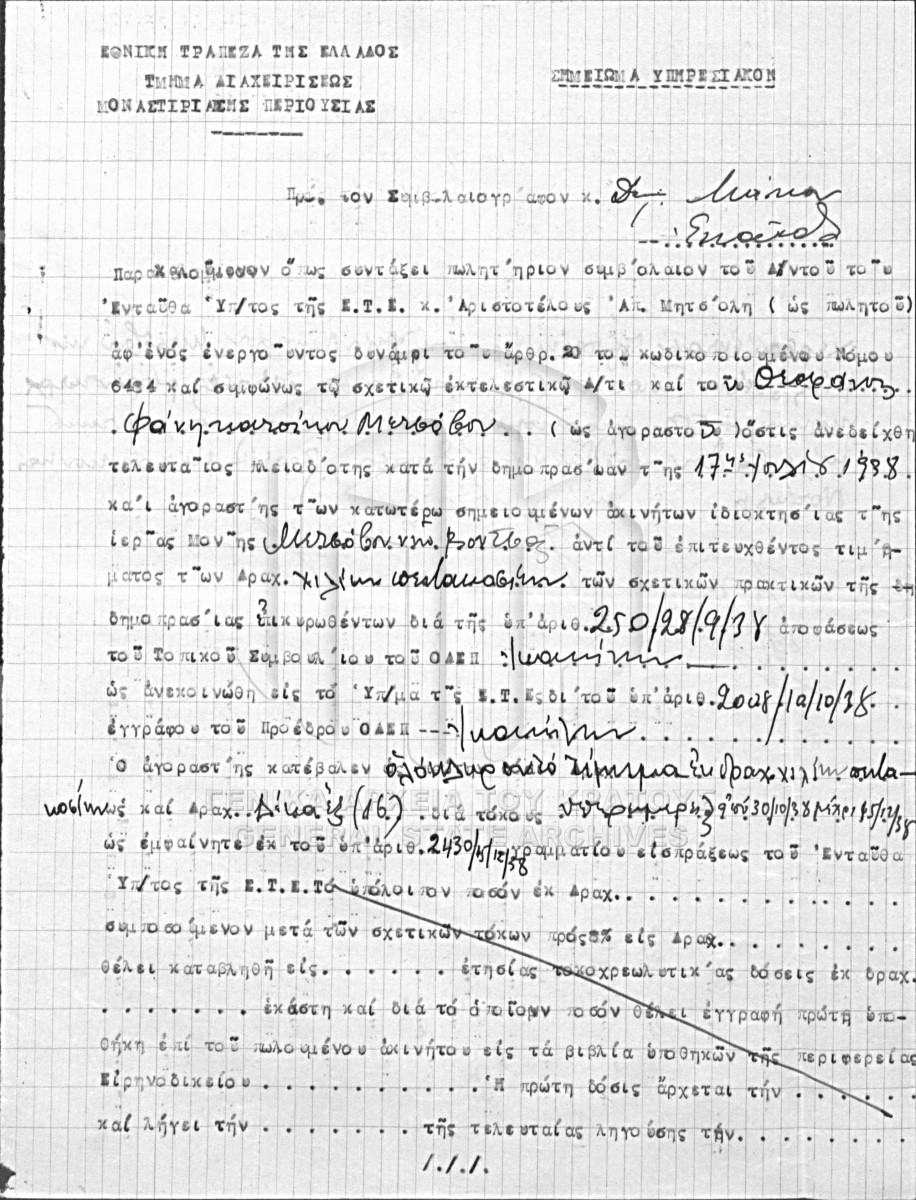 ΕΘΝΙΚΗ ΤΡΑΠΕΖΑ ΤΗΣ ΕΛΛΑΔΟΣ
ΤΜΗΜΑ ΔΙΑΧΕΙΡΙΣΕΩΣ
ΜΟΝΑΣΤΙΡΙΑΚΗΣ ΠΕΡΙΟΥΣΙΑΣ
ΣΗΜΕΙΩΜΑ ΥΠΗΡΕΣΙΑΚΟΝ
Πρός τον Συμβολαιογράφον κ.
Παρακαλοῦμεν ὅπως συντάξει πωλητήριον συμβόλαιον τοῦ Δ/ντοῦ τοῦ
Ἐνταῦθα Ὑπ/τος τῆς Ε.Τ.Ε. κ. Ἀριστοτέλους Ἀπ. Μητσόλη ( ὡς πωλητοῦ)
ἀφ'ἑνός ἐνεργοῦντος δυνάμει τοῦ ἄρθρ. 20 τοῦ κωδικοποιουμένου Νόμου
6434 καί συμφώνως τῷ σχετικῷ ἐκτελεστικῷ Δ/τι καί τοῦ
Φάκη κατοίκου Μετσόβου . . ( ὡς ἀγοραστοῦ )ὅστις ἀνεδείχθη
τελευταῖος πλειοδότης κατά τήν δημοπρασίαν τῆς 17ης Ἰουλίου 1938
καί ἀγοραστής τῶν κατωτέρω σημειουμένων ἀκινήτων ἰδιοκτησίας τῆς
ἱερᾶς Μονῆς Μετσόβου ἀντί τοῦ ἐπιτευχθέντος τιμή-
ματος τῶν Δραχ. χιλίων πεντακοσίων. τῶν σχετικῶν πρακτικῶν τῆς
δημοπρασίας ἐπικυρωθέντων διά τῆς ὑπ'ἀριθ. 250/28/9/38 ἀποφάσεως
τοῦ Τοπικοῦ Συμβουλίου τοῦ ΟΔΕΠ Ἰωαννίνων . . . . . . . .
ὡς ἀνεκοινώθη εἰς τό Ὑπ/μα τῆς Ε.Τ.Ε. δι'τοῦ ὑπ'ἀριθ. 2008/10/10/38.
ἐγγράφου τοῦ Προέδρου ΟΔΕΠ --- Ἰωαννίνων . . . . . . . . .
Ὁ ἀγοραστής κατέβαλεν ὁλόκληρον τό τίμημα ἐκ δραχ. χιλίων πεντα-
κοσίων καί Δραχ. Δέκα ἕξ (16) . διά τόκους ὑπερημερίας ἀπό 30/10/38 μέχρι 15/12/38
ὡς ἐμφαίνητε ἐκ τοῦ ὑπ'ἀριθ. 2430/15/12/38 γραμματίου εἰσπράξεως τοῦ Ἐνταῦθα
Ὑπ/τος τῆς Ε.Τ.Ε. Τό ὑπόλοιπον ποσόν ἐκ Δραχ. . . . . . . . . . .
συμποσούμενον μετά τῶν σχετικῶν τόκων πρός 8% εἰς Δραχ. . . . . . . .
θέλει καταβληθῆ εἰς. . . . . . ἐτησίας τοκοχρεωλυτικάς δόσεις ἐκ δραχ.
. . . . . . . ἑκάστη καί διά τό ὁποῖον ποσόν θέλει ἐγγραφή πρώτη ὑπο-
θήκη ἐπί τοῦ πωλουμένου ἀκινήτου εἰς τά βιβλία ὑποθηκῶν τῆς περιφερείας
Εἰρηνοδικείου . . . . . . . . . . .Ἡ πρώτη δόσις ἄρχεται τήν . . . . . .
καί λήγει τήν . . . . . . . τῆς τελευταίας ληγούσης τήν. . . . . . . . .
/././.
ΓΕΝΙΚΑ ΑΡΧΕΙΑ ΤΟΥ ΚΡΑΤΟΥΣ
GENERAL STATE ARCHIVES